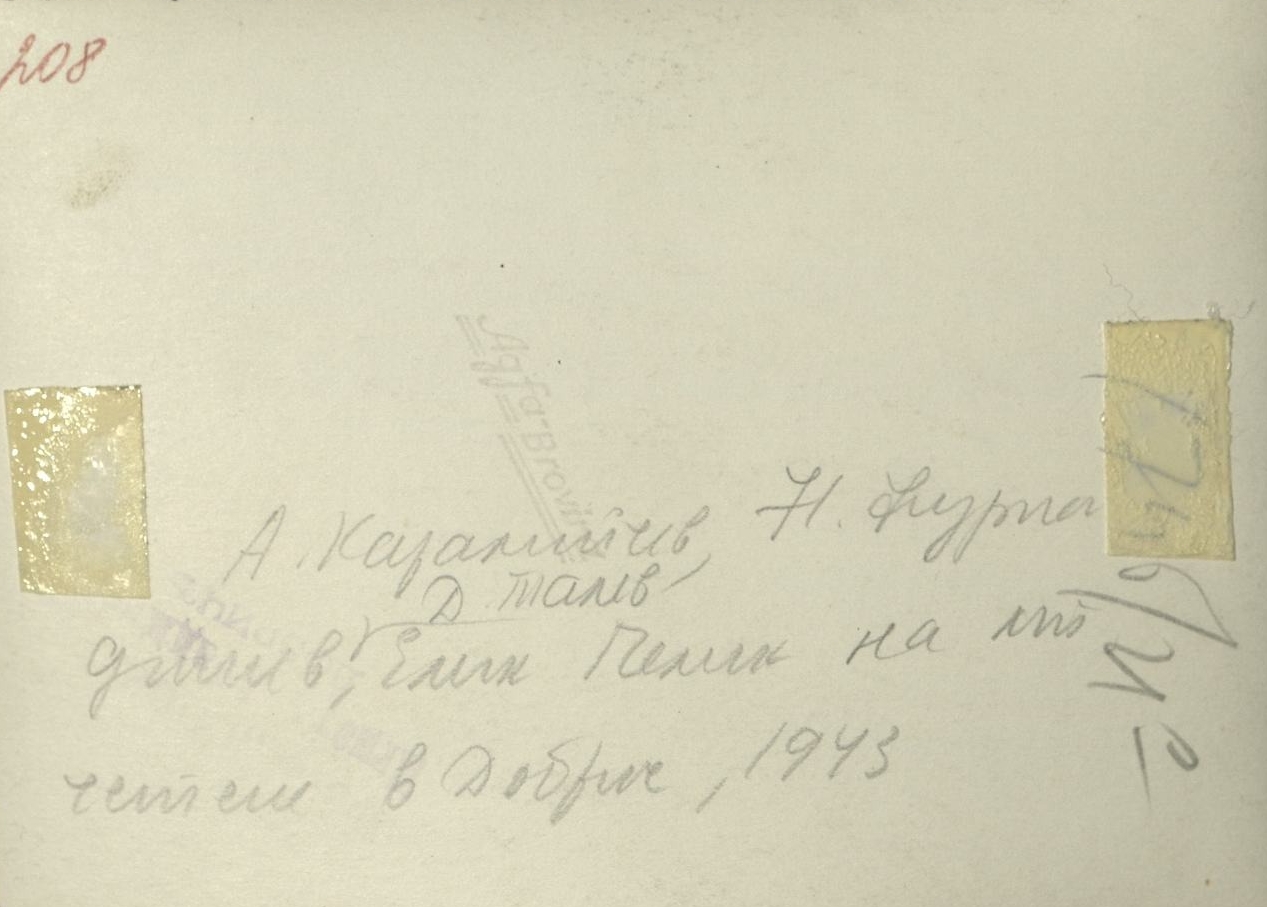 208
Agfa-Brovira
А. Каралийчев, Н. Фурна
Д. Талев
джиев, Елин Пелин на лит
четене в Добрич, 1943